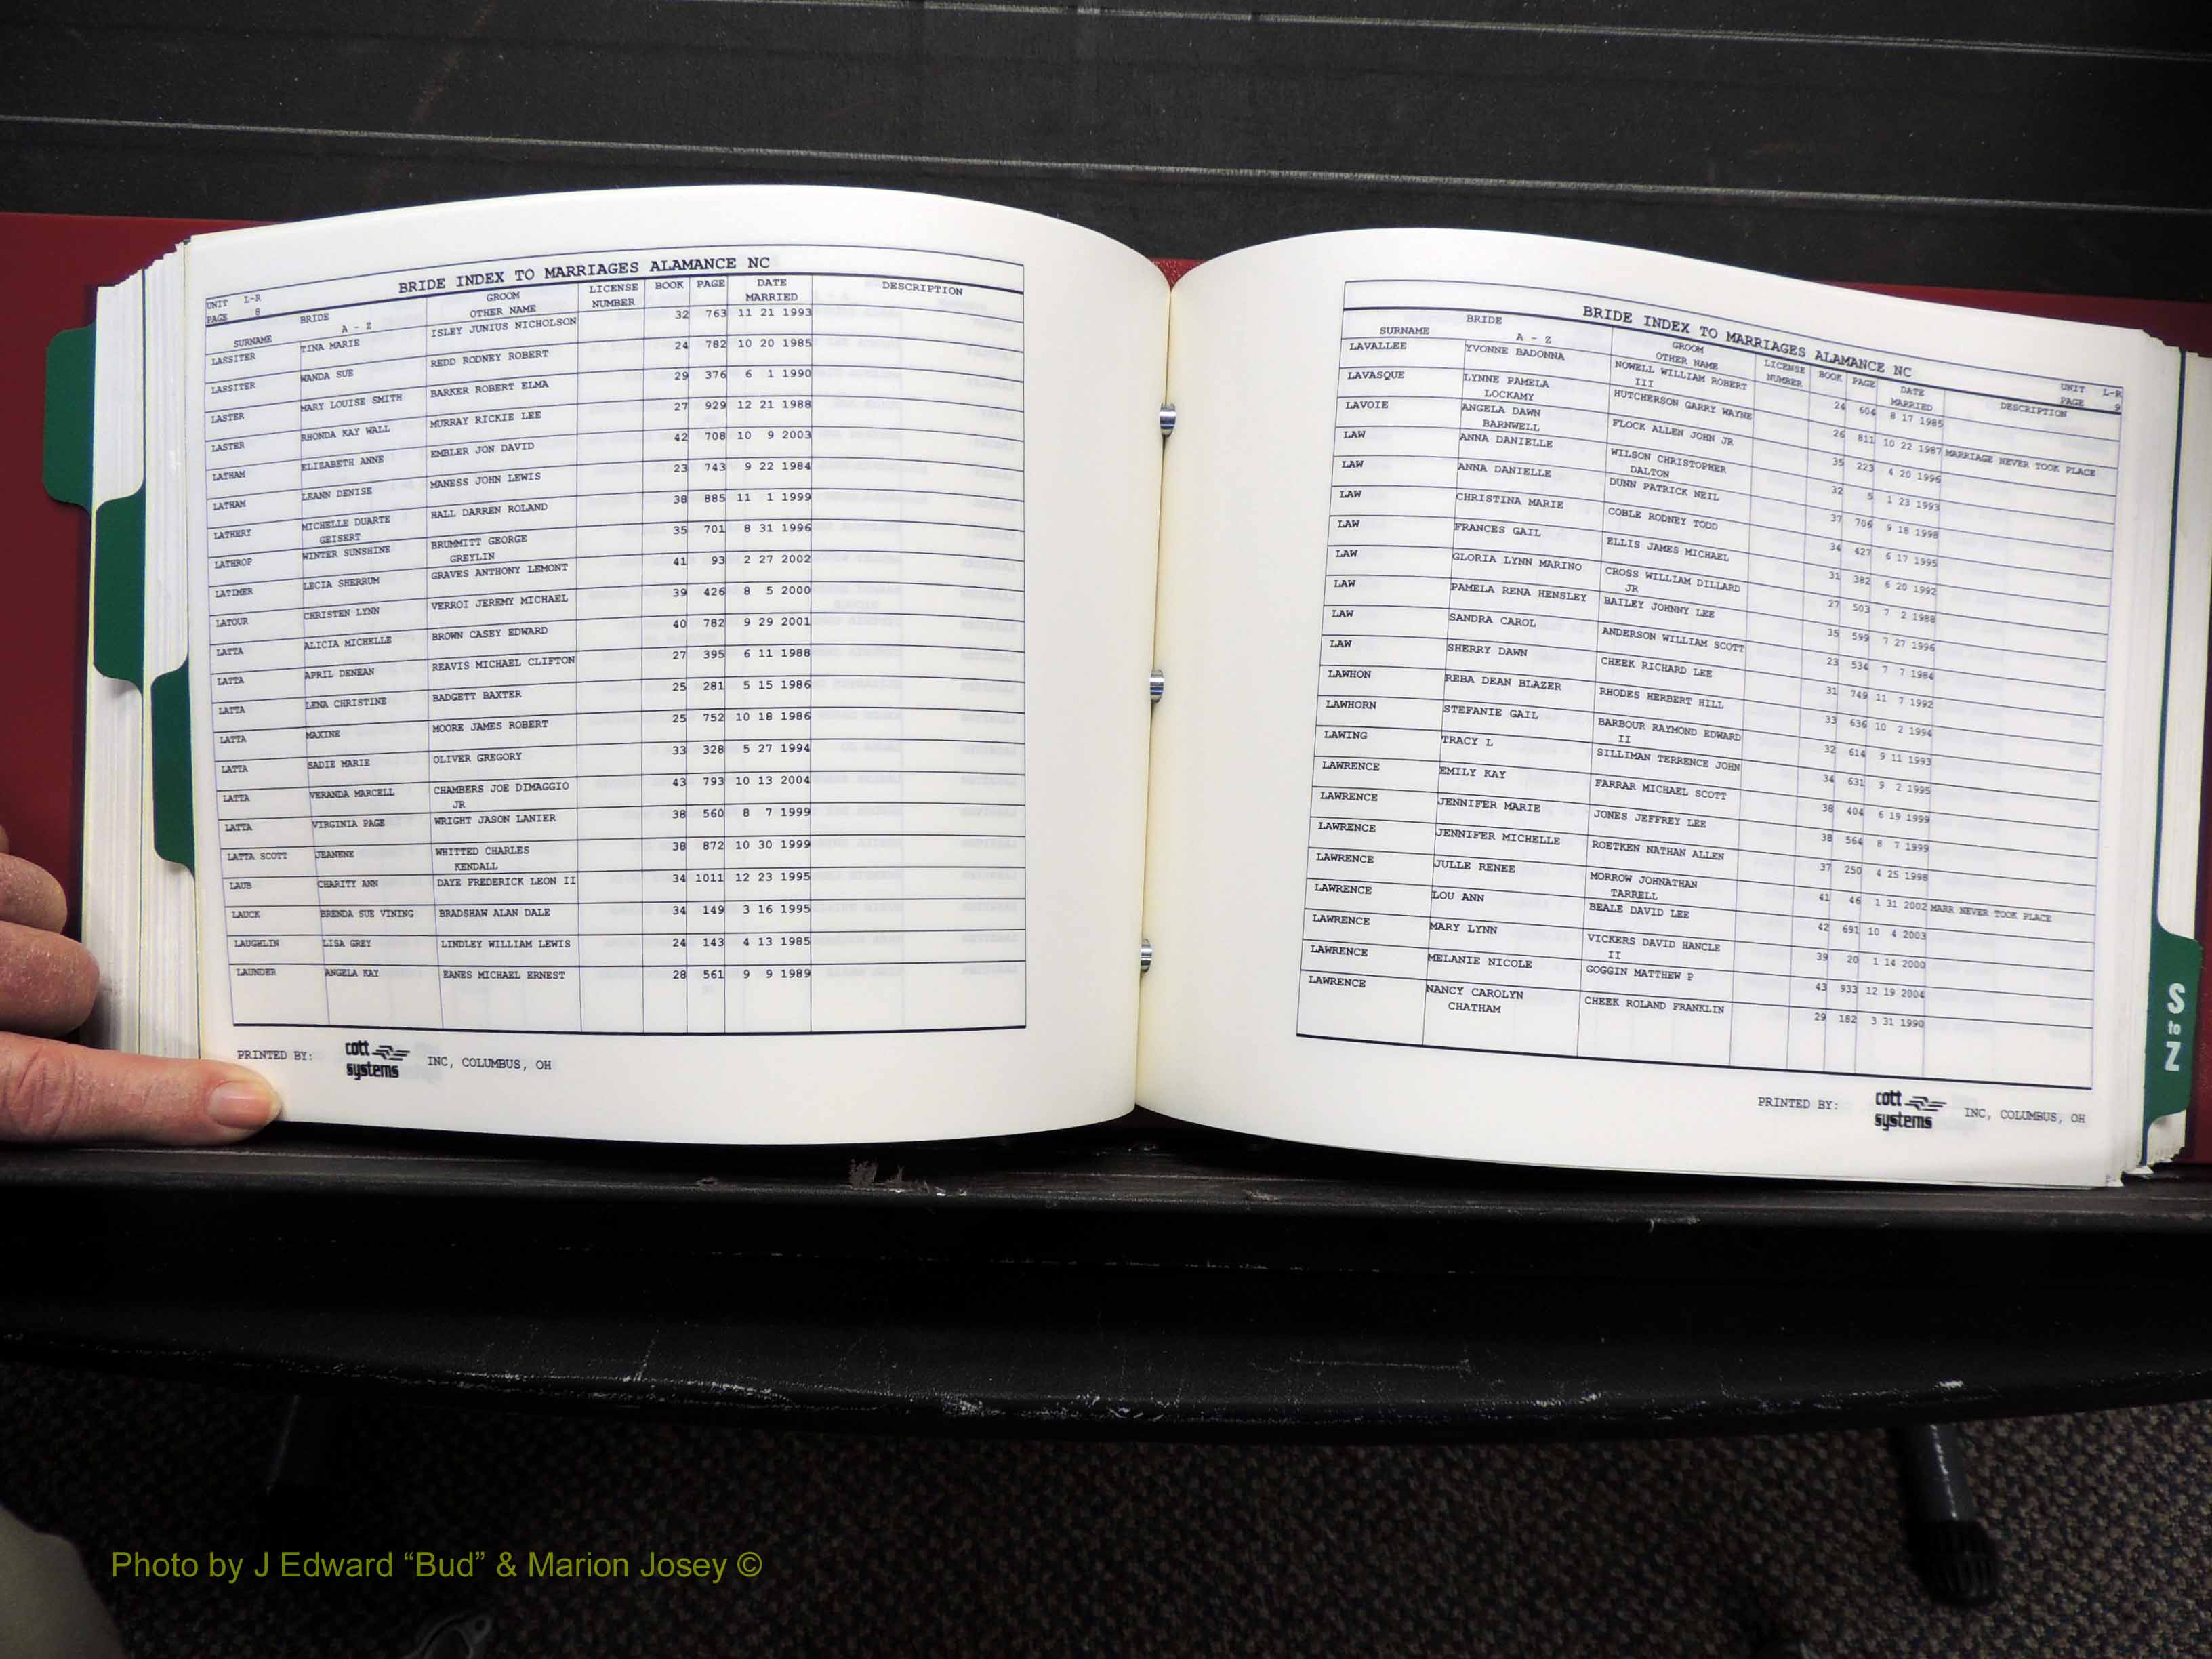 BRIDE INDEX TO MARRIAGES ALAMANCE NC
UNIT L-R
PAGE 8
BRIDE GROOM LICENSE BOOK PAGE DATE DESCRIPTION
SURNAME A - Z OTHER NAME NUMBER MARRIED
LASSITER TINA MARIE ISLEY JUNIUS NICHOLSON 32 763 11 21 1993
LASSITER WANDA SUE REDD RODNEY ROBERT 24 782 10 20 1985
LASTER MARY LOUISE SMITH BARKER ROBERT ELMA 29 376 6 1 1990
LASTER RHONDA KAY WALL MURRAY RICKIE LEE 27 929 12 21 1988
LATHAM ELIZABETH ANNE EMBLER JON DAVID 42 708 10 9 2003
LATHAM LEANN DENISE MANESS JOHN LEWIS 23 743 9 22 1984
LATHERY MICHELLE DUARTE HALL DARREN ROLAND 38 885 11 1 1999
GEISERT
LATHROP WINTER SUNSHINE BRUMMITT GEORGE 35 701 8 31 1996
GREYLIN
LATIMER LECIA SHERRUM GRAVES ANTHONY LEMONT 41 93 2 27 2002
LATOUR CHRISTEN LYNN VERROI JEREMY MICHAEL 39 426 8 5 2000
LATTA ALICIA MICHELLE BROWN CASEY EDWARD 40 782 9 29 2001
LATTA APRIL DENEAN REAVIS MICHAEL CLIFTON 27 395 6 11 1988
LATTA LENA CHRISTINE BADGETT BAXTER 25 281 5 15 1986
LATTA MAXINE MOORE JAMES ROBERT 25 752 10 18 1986
LATTA SADIE MARIE OLIVER GREGORY 33 328 5 27 1994
LATTA VERANDA MARCELL CHAMBERS JOE DIMAGGIO 43 793 10 13 2004
JR
LATTA VIRGINIA PAGE WRIGHT JASON LANIER 38 560 8 7 1999
LATTA SCOTT JEANENE WHITTED CHARLES 38 872 10 30 1999
KENDALL
LAUB CHARITY ANN DAYE FREDERICK LEON II 34 1011 12 23 1995
LAUCK BRENDA SUE VINING BRADSHAW ALAN DALE 34 149 3 16 1995
LAUGHLIN LISA GREY LINDLEY WILLIAM LEWIS 24 143 4 13 1985
LAUNDER ANGELA KAY EANES MICHAEL ERNEST 28 561 9 9 1989
PRINTED BY: cott systems INC, COLUMBUS, OH
BRIDE INDEX TO MARRIAGES ALAMANCE NC
UNIT L-R
PAGE 9
BRIDE GROOM LICENSE BOOK PAGE DATE DESCRIPTION
SURNAME A - Z OTHER NAME NUMBER MARRIED
LAVALLEE YVONNE BADONNA NOWELL WILLIAM ROBERT 24 604 8 17 1985
III
LAVASQUE LYNNE PAMELA HUTCHERSON GARRY WAYNE 26 811 10 22 1987 MARRIAGE NEVER TOOK PLACE
LOCKAMY
LAVOIE ANGELA DAWN FLOCK ALLEN JOHN JR 35 223 4 20 1996
BARNWELL
LAW ANNA DANIELLE WILSON CHRISTOPHER 32 5 1 23 1993
DALTON
LAW ANNA DANIELLE DUNN PATRICK NEIL 37 706 9 18 1998
LAW CHRISTINA MARIE COBLE RODNEY TODD 34 427 6 17 1995
LAW FRANCES GAIL ELLIS JAMES MICHAEL 31 382 6 20 1992
LAW GLORIA LYNN MARINO CROSS WILLIAM DILLARD 27 503 7 2 1988
JR
LAW PAMELA RENA HENSLEY BAILEY JOHNNY LEE 35 599 7 27 1996
LAW SANDRA CAROL ANDERSON WILLIAM SCOTT 23 534 7 7 1984
LAW SHERRY DAWN CHEEK RICHARD LEE 31 749 11 7 1992
LAWHON REBA DEAN BLAZER RHODES HERBERT HILL 33 636 10 2 1994
LAWHORN STEFANIE GAIL BARBOUR RAYMOND EDWARD 32 614 9 11 1993
II
LAWING TRACY L SILLIMAN TERRENCE JOHN 34 631 9 2 1995
LAWRENCE EMILY KAY FARRAR MICHAEL SCOTT 38 404 6 19 1999
LAWRENCE JENNIFER MARIE JONES JEFFREY LEE 38 564 8 7 1999
LAWRENCE JENNIFER MICHELLE ROETKEN NATHAN ALLEN 37 250 4 25 1998
LAWRENCE JULLE RENEE MORROW JOHNATHAN 41 46 1 31 2002 MARR NEVER TOOK PLACE
TARRELL
LAWRENCE LOU ANN BEALE DAVID LEE 42 691 10 4 2003
LAWRENCE MARY LYNN VICKERS DAVID HANCLE 39 20 1 14 2000
II
LAWRENCE MELANIE NICOLE GOGGIN MATTHEW P 43 933 12 19 2004
LAWRENCE NANCY CAROLYN CHEEK ROLAND FRANKLIN 29 182 3 31 1990
CHATHAM
PRINTED BY: cott systems INC, COLUMBUS, OH
S
to
Z
Photo by J Edward “Bud” & Marion Josey ©